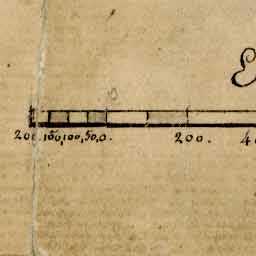 200. 150, 100, 50, 0. 200.